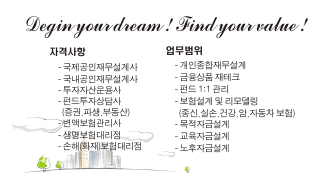 Degin your dream ! Find your value !
자격사항
- 국제공인재무설계사
- 국내공인재무설계사
- 투자자산운용사
- 펀드투자상담사
(증권,파생,부동산)
- 변액보험관리사
- 생명보험대리점
- 손해(화재)보험대리점
업무범위
- 개인종합재무설계
- 금융상품 재테크
- 펀드 1:1 관리
- 보험설계 및 리모델링
(종신,실손,건강,암,자동차 보험)
- 목적자금설계
- 교육자금설계
- 노후자금설계